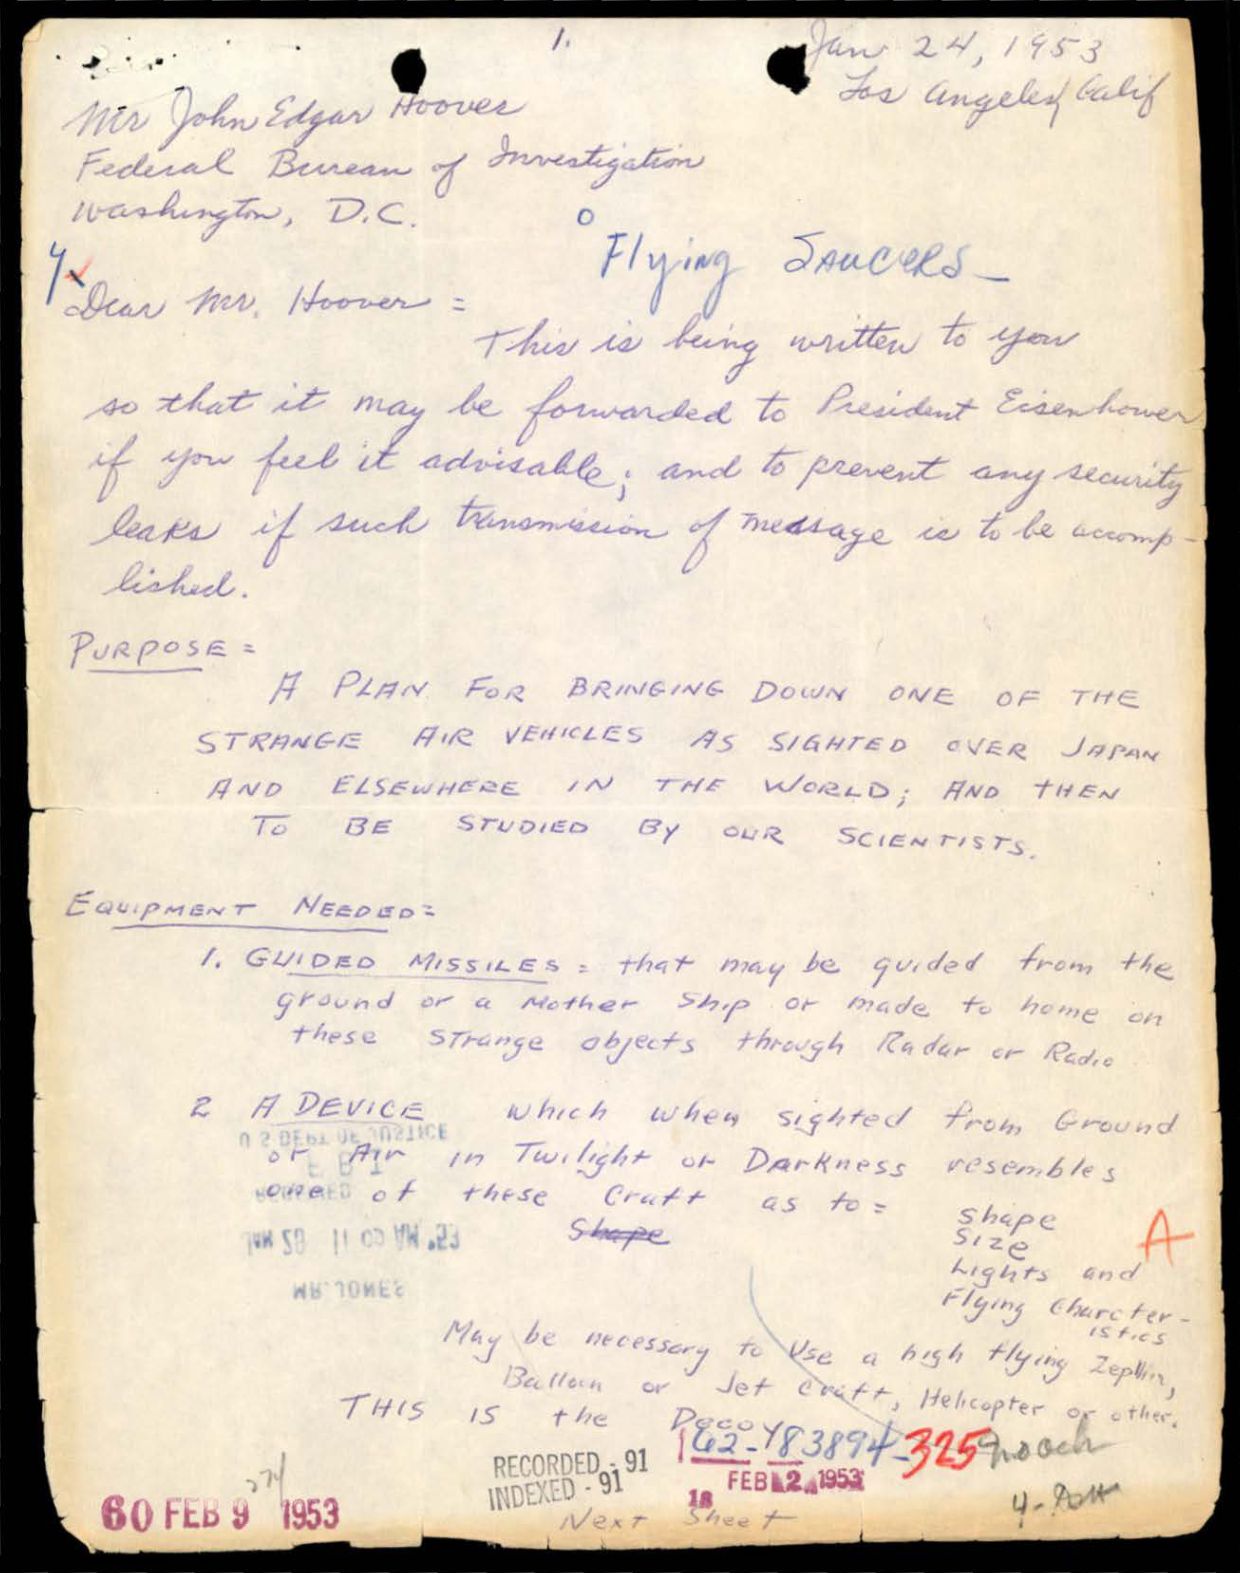 1.
Jan 24, 1953
Los Angeles, Calif
Mr John Edgar Hoover
Federal Bureau of Investigation
Washington, D.C.
Flying SAUCERS -
Dear Mr. Hoover =
This is being written to you
so that it may be forwarded to President Eisenhower
if you feel it advisable; and to prevent any security
leaks if such transmission of message is to be accomp-
lished.
PURPOSE =
A PLAN FOR BRINGING DOWN ONE OF THE
STRANGE AIR VEHICLES AS SIGHTED OVER JAPAN
AND ELSEWHERE IN THE WORLD; AND THEN
TO BE STUDIED BY OUR SCIENTISTS.
EQUIPMENT NEEDED =
1. GUIDED MISSILES = that may be guided from the
ground or a Mother Ship or made to home on
these strange objects through Radar or Radio
2 A DEVICE which when sighted from Ground
U S DEPT OF JUSTICE
or Air in Twilight or Darkness resembles
F B I
one of these Craft as to =
Shape
Shape
Size
JAN 28 11 00 AM '53
Lights and
MR. JONES
Flying Charcter-
istics
May be necessary to Use a high flying Zepllin,
Balloon or Jet Craft, Helicopter or other.
THIS IS the Decoy
A
62-83894-325
RECORDED - 91
INDEXED - 91
FEB 2 1953
18
60 FEB 9 1953
274
Next Sheet